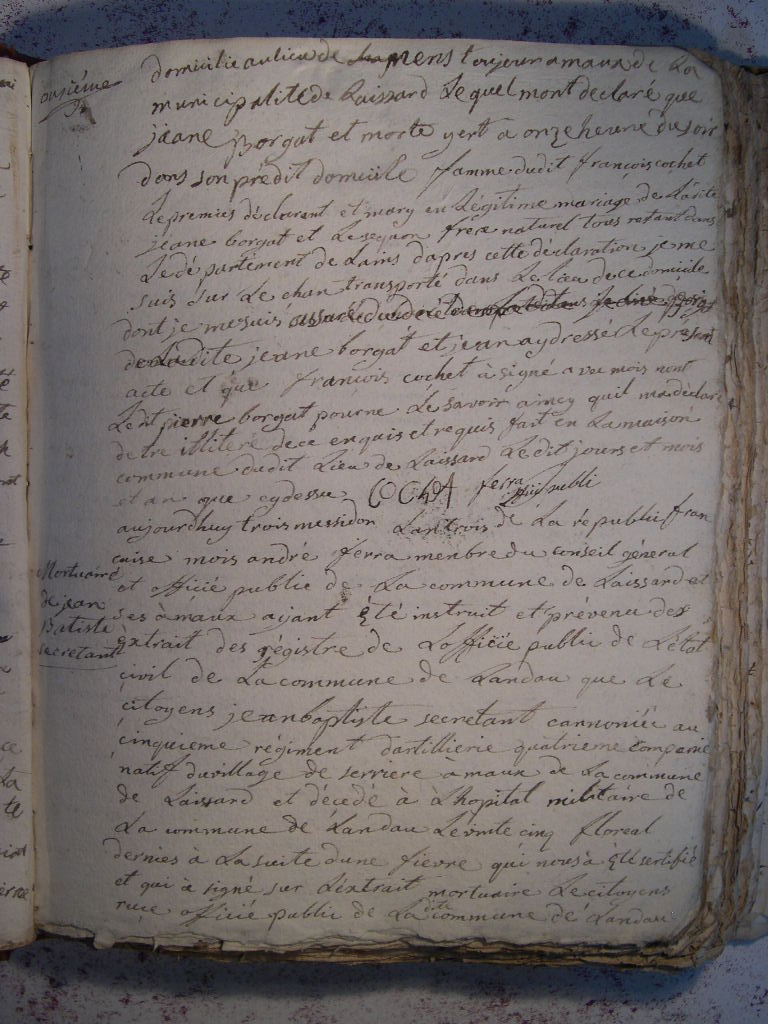 onsiéme
domicilie au lieu de mens toujour amaux de La
municipalité de Laissard Lequel mont declaré que
jeane Borgat et morte yert a onze heure du soir
dans son prédit domicile famme dudit françois cochet
Le premies déclarant et mary en Légitime mariage de Ladite
jeane borgat et Le segon frea naturel tous restant dans
Le dé partement de Lains dapres cette déclaration je me
suis sur Le chan transporté dans Le Lieu de ce domicile
dont je me suis assuré du décé
de Ladite jeane borgat et jean ay dressé Le present
acte et que françois cochet à signé avec mois nont
Ledit pierre borgat pour ne Le savoir aincy quil ma déclaré
detre illitere de ce enquis et requis fait en La maison
commune dudit Lieu de Laissard Ledit jours et mois
et an que cydessu COCHET ferra
offi publi
aujourdhuy trois messidor Lan trois de La républi fran
caise mois andré ferra menbre du conseil général
Mortuaire
de jean
Batiste
secretant
et officié public de La commune de Laissard et
ses amaux ayant été instruit et prévenu des
extrait des régistre de Lofficié public de Letat
civil de La commune de Landau que Le
citoyens jean baptiste secretant cannonié au
cinquieme régiment dartillierie quatrieme companie
natif du village de serriere à maux de La commune
de Laissard et décedé à Lhopital militaire de
La commune de Landau Le vinte cinq floreal
dernies à La suite dune fievre qui nous à été sertifié
et qui à signé sur Léxtrait mortuaire Le citoyens
officié public de La dite commune de Landau